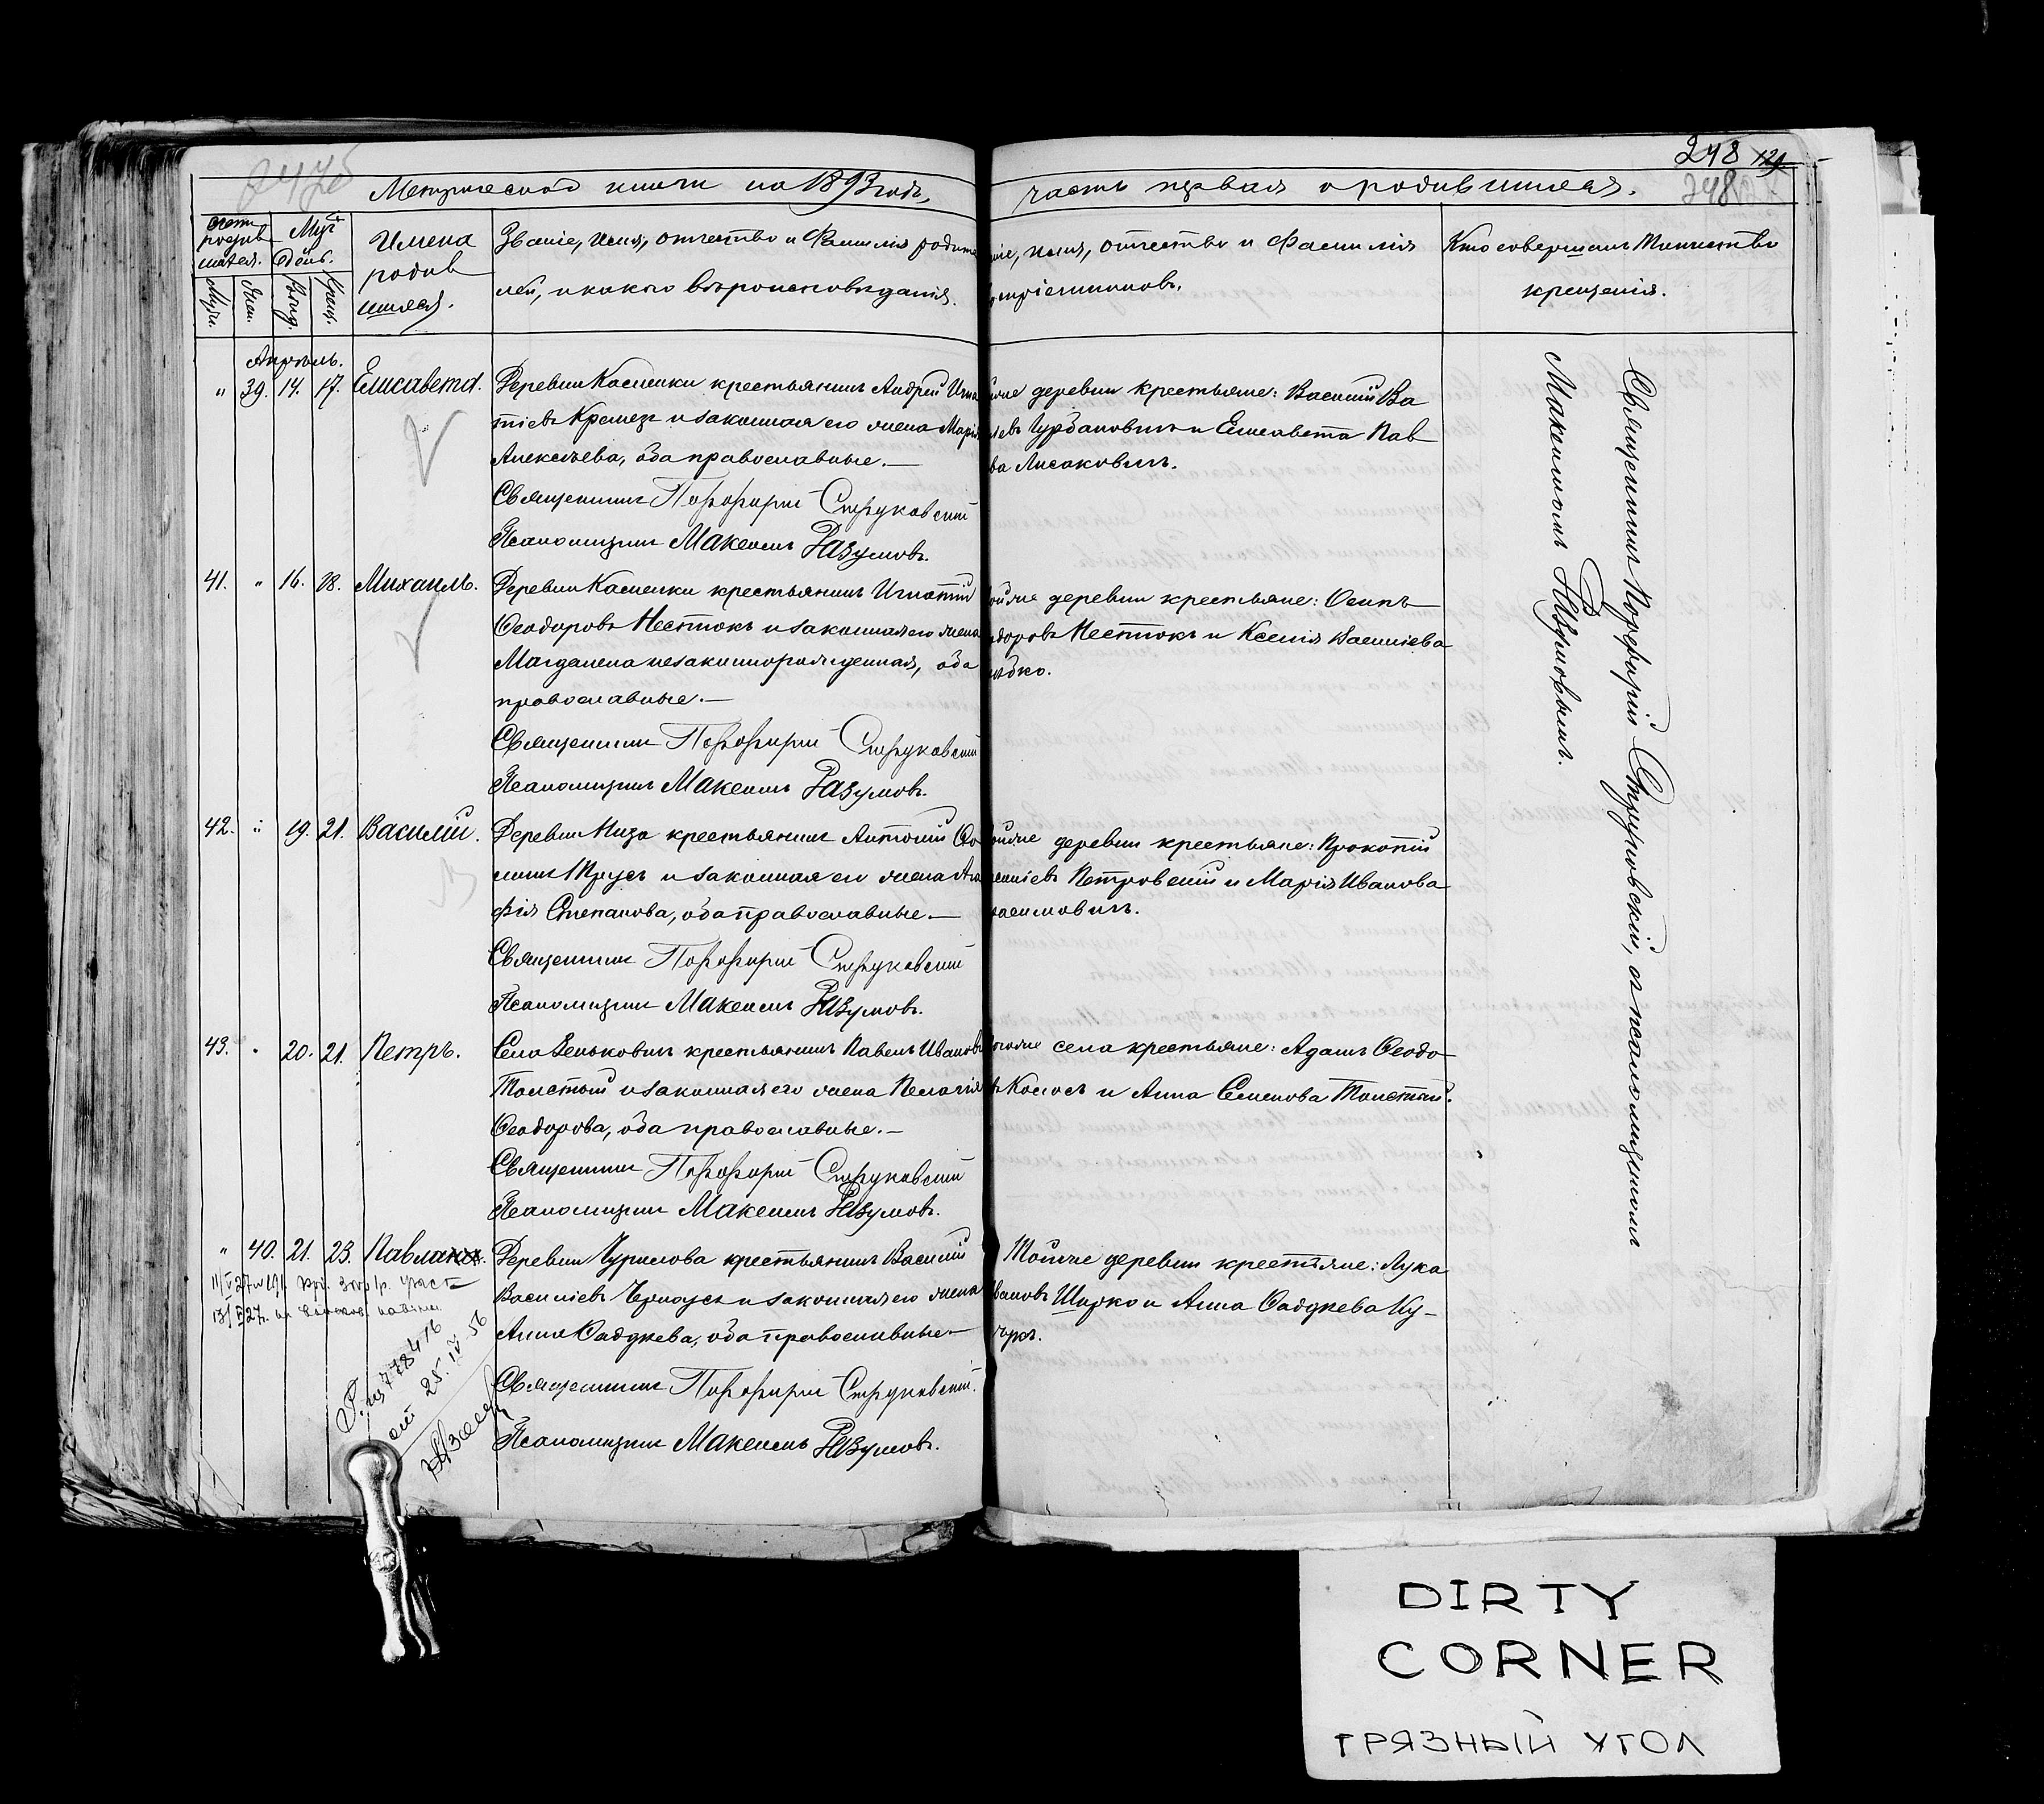 248
Метрической книги на 1893 годъ,
часть первая о родившихся.
Счетъ родив шихся.
Мѣс. и день.
Имена родив шихся.
Званіе, имя, отчество и фамилія родите
лей, и какого вѣроисповѣданія.
ніе, имя, отчество и фамилія
воспріемниковъ.
Кто совершалъ таинство
крещенія.
Муж.
Жен.
Рожд.
Крещ.
Апрѣль.
" 39. 14. 17. Елисавета.
Деревни Каменки крестьянинъ Андрей Игна
тіевъ Кремезъ и законная его жена Марія
Алексѣева, оба православные.—
Священникъ Порфирий Струковский
Псаломщикъ Максимъ Разумовъ.
деревни крестьяне: Василій Ва
левъ Гурбановичъ и Елисавета Пав
ва Лисаковичъ.
41. " 16. 18. Михаилъ.
Деревни Каменки крестьянинъ Игнатій
Ѳеодоровъ Нестюкъ и законная его жена
Магдалена незаконнорожденная, оба
православные.—
Священникъ Порфирий Струковский
Псаломщикъ Максимъ Разумовъ.
деревни крестьяне: Осипъ
одоровъ Нестюкъ и Ксенія Василіева
42. " 19. 21. Василій.
Деревни Мизо крестьянинъ Антоній Ѳо
минъ Трусъ и законная его жена Ага
фія Степанова, оба православные.—
Священникъ Порфирий Струковский
Псаломщикъ Максимъ Разумовъ.
деревни крестьяне: Прокопій
Петровскій и Марія Иванова
43. " 20. 21. Петръ.
Села Зеньковичъ крестьянинъ Павелъ Ивановъ
Толстый и законная его жена Пелагія
Ѳеодорова, оба православные.—
Священникъ Порфирий Струковский
Псаломщикъ Максимъ Разумовъ.
села крестьяне: Адамъ Ѳеодо
Колосъ и Анна Семенова Толстый.
" 40. 21. 23. Павла
Деревни Чурилова крестьянинъ Василій
Василіевъ и законная его жена
Анна Ѳаддѣева, оба православные.—
Священникъ Порфирий Струковский.
Псаломщикъ Максимъ Разумовъ.
Тойже деревни крестьяне: Лука
вановъ Ширко и Анна Ѳаддѣева Ку-
778416
25. IV. 56
Священникъ Порфирій Струковскій, съ псаломщикомъ
Максимомъ Разумовымъ.
DIRTY
CORNER
ГРЯЗНЫЙ УГОЛ